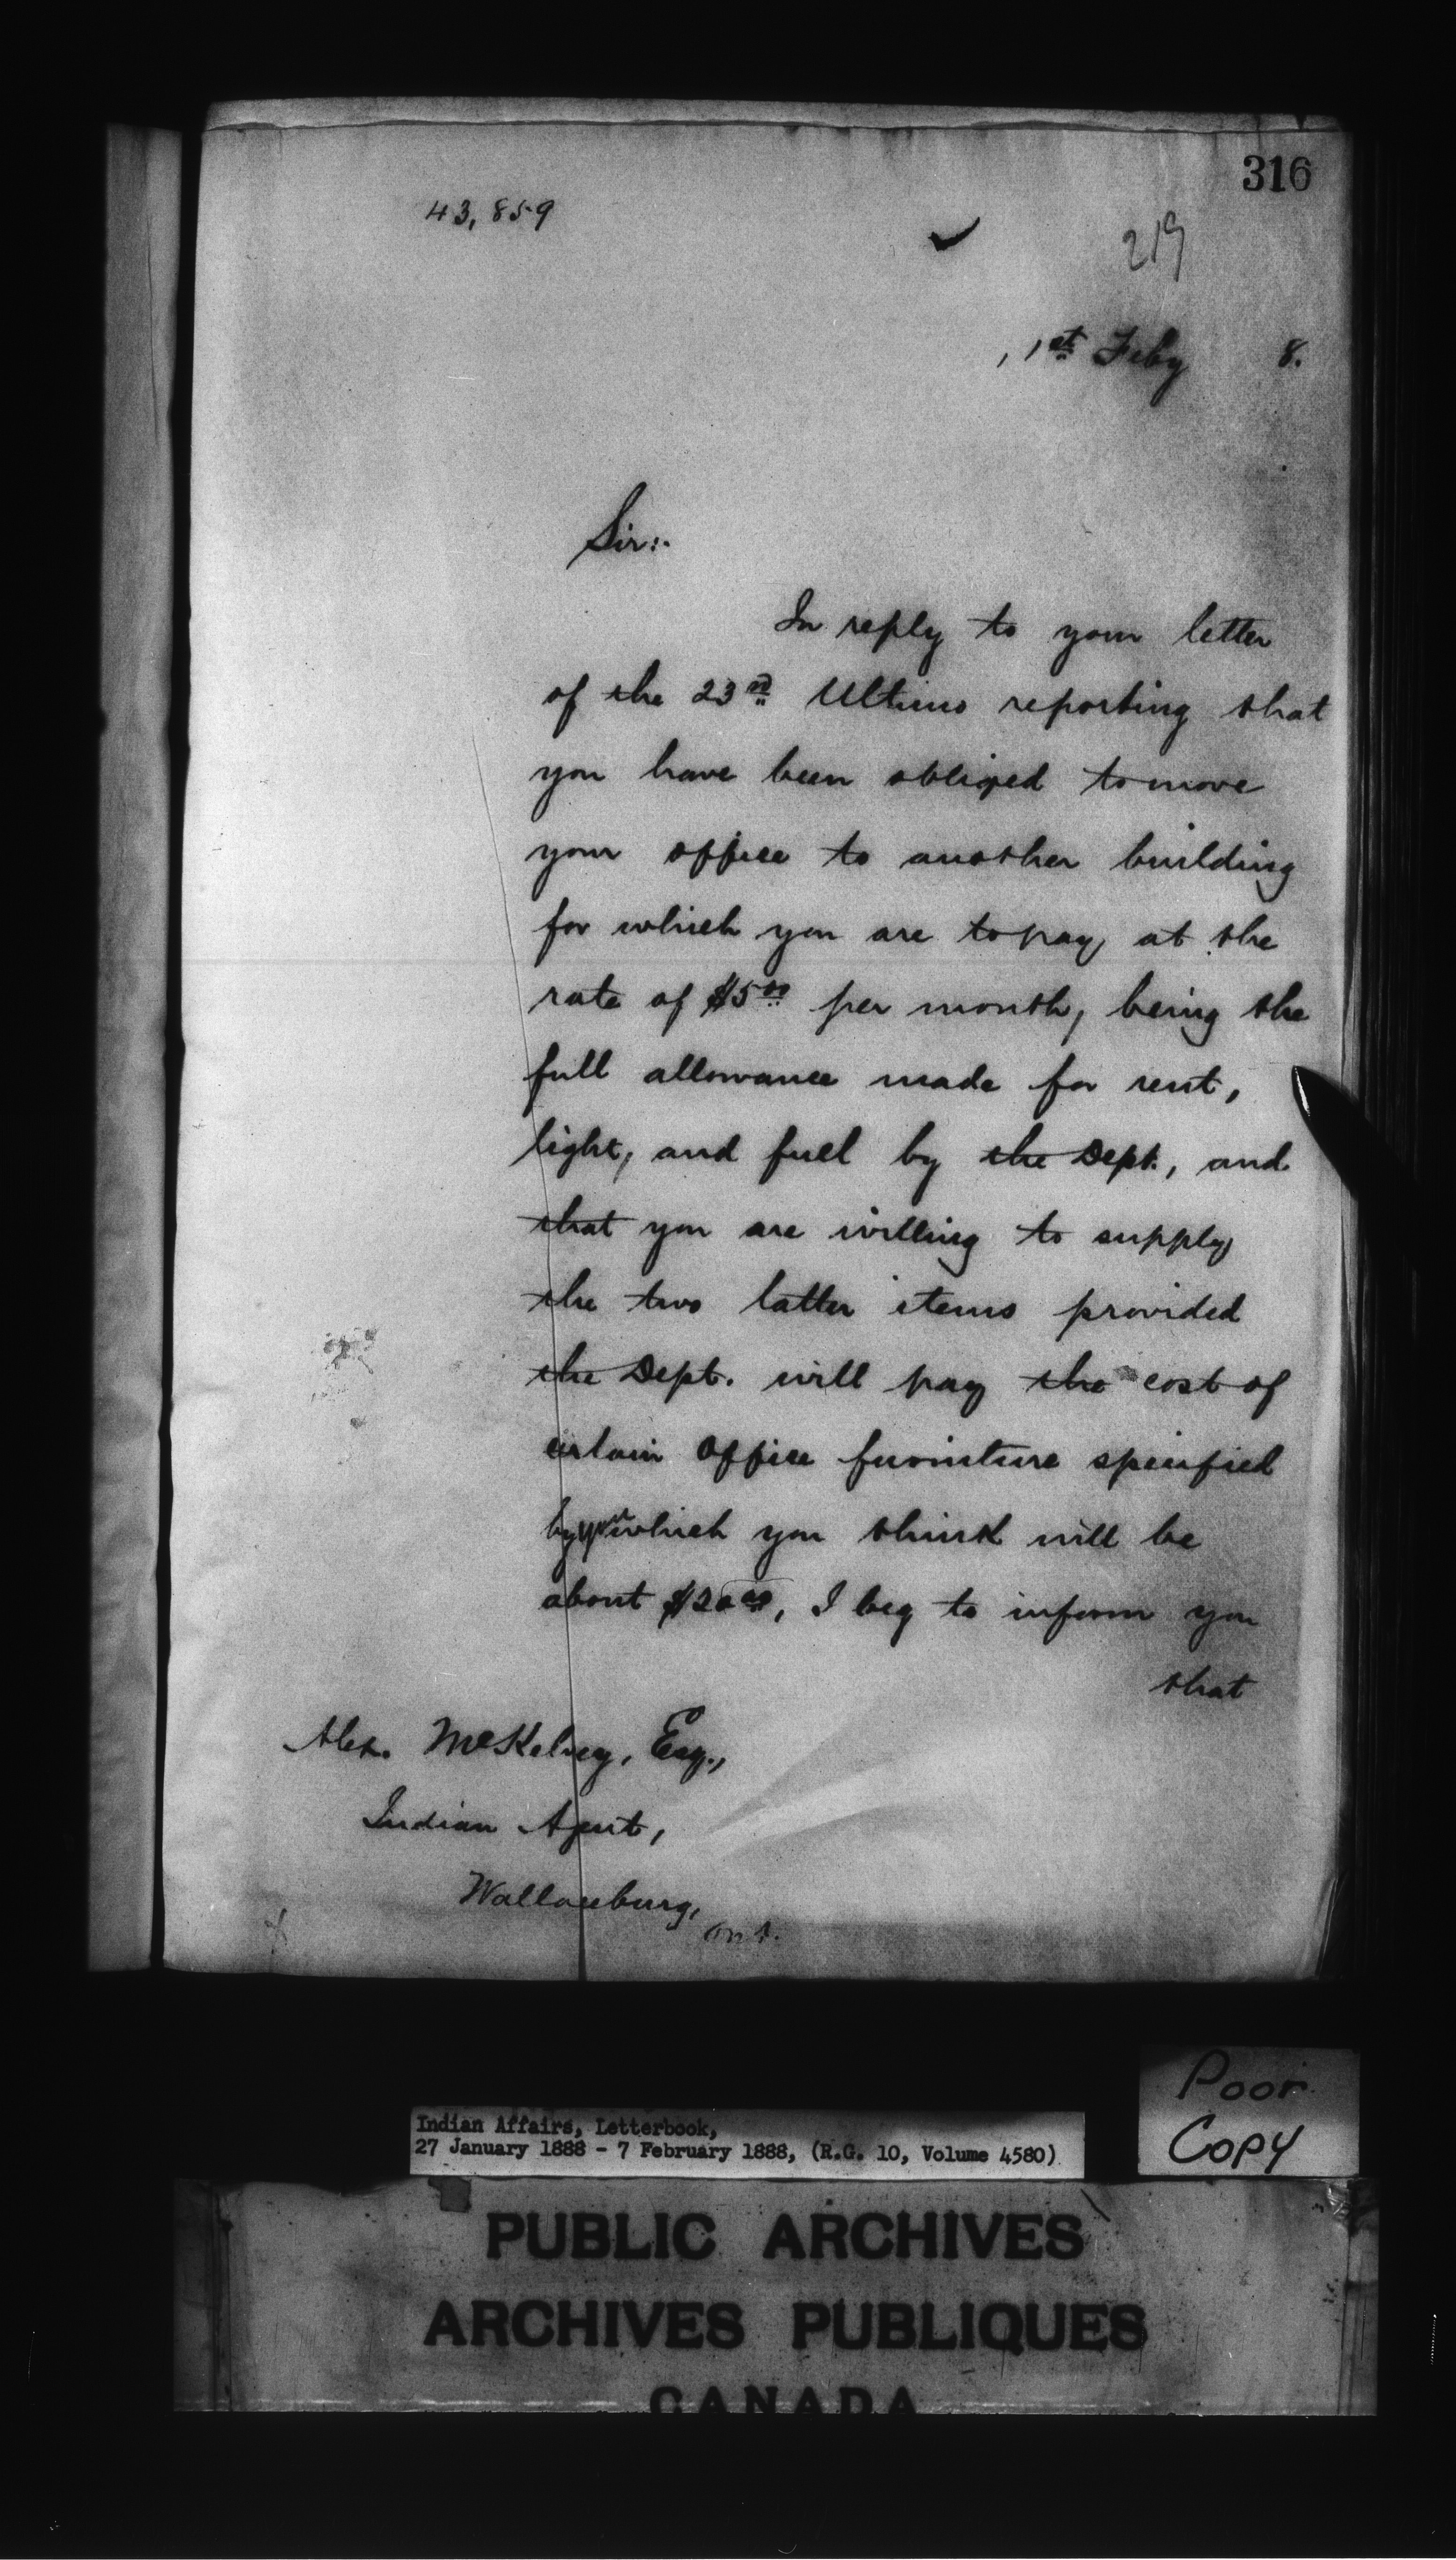 316
43,859
219
, 1st Feby 8.
Sir:-
In reply to your letter
of the 23rd Ultimo reporting that
you have been obliged to move
your office to another building
for which you are to pay at the
rate of $5.00 per month, being the
full allowance made for rent,
light, and fuel by the Dept., and
that you are willing to supply
the two latter items provided
the Dept. will pay the cost of
certain Office furniture specified
by you which you think will be
about $20.00, I beg to inform you
that
Alex. McKelvey, Esq.,
Indian Agent,
Wallaceburg,
Ont.
Poor
Copy
Indian Affairs, Letterbook,
27 January 1888 - 7 February 1888, (R.G. 10, Volume 4580)
PUBLIC ARCHIVES
ARCHIVES PUBLIQUES
CANADA